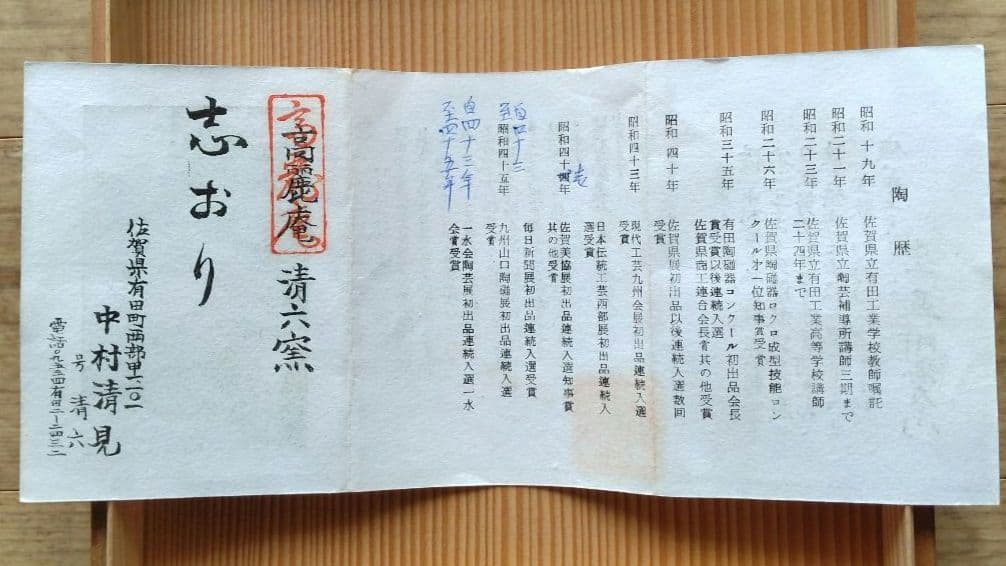 陶歴
昭和十九年 佐賀県立有田工業学校教師嘱託
昭和二十一年 佐賀県立窯芸補導所講師三期まで
昭和二十三年 佐賀県立有田工業高等学校講師
二十四年まで
昭和二十六年 佐賀県陶磁器ロクロ成型技能コン
クール才一位知事賞受賞
昭和三十五年 有田陶磁器コンクール初出品会長
賞受賞以後連続入選
佐賀県商工連合会長賞其の他受賞
昭和四十年 佐賀県展初出品以後連続入選数回
受賞
昭和四十三年 現代工芸九州会展初出品連続入選
受賞
日本伝統工芸西部展初出品連続入
選受賞
昭和四十年 佐賀美協展初出品連続入選知事賞
其の他受賞
自四十三
至昭和四十五年 毎日新聞展初出品連続入選受賞
九州山口陶磁展初出品連続入選
受賞
自四十三年
至四十五年 一水会陶芸展初出品連続入選一水
会賞受賞
高麗庵 清六窯
志おり
佐賀県有田町西部甲六〇一
中村清見
号 清六
電話〇九五五四有田二ー二四三二